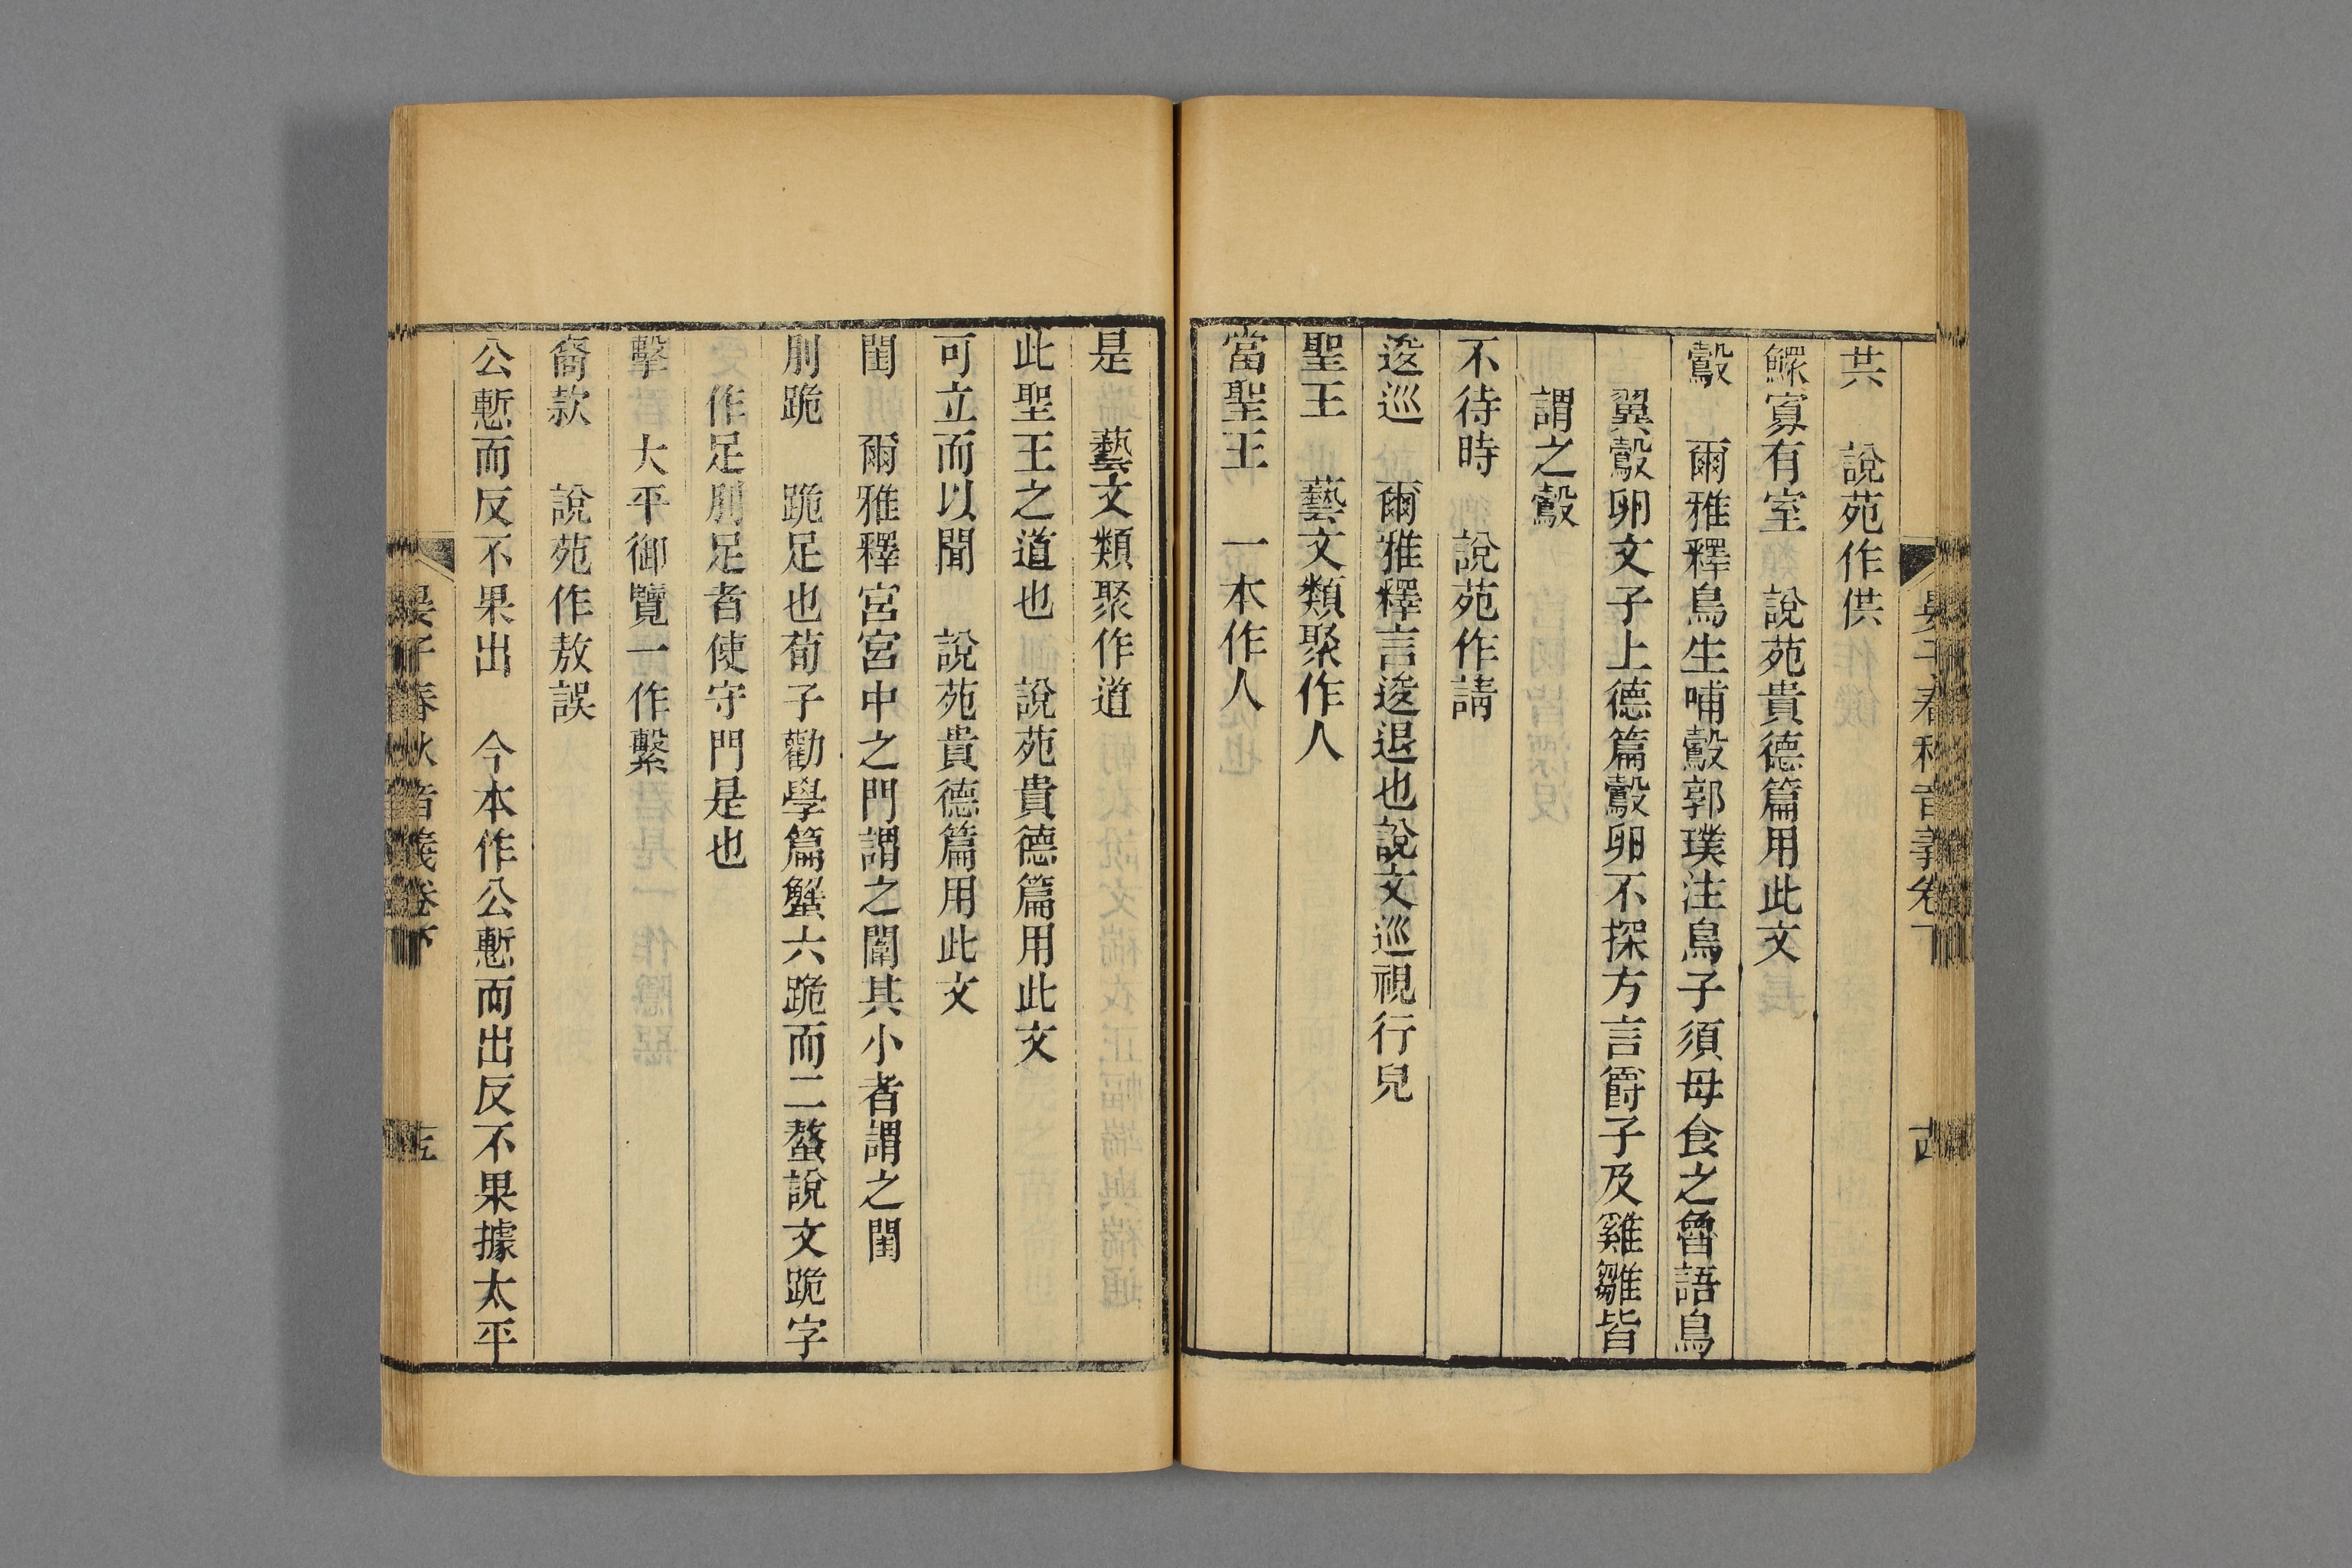 晏子春秋音義卷下
共　說苑作供
鰥寡有室　說苑貴德篇用此文
鷇　爾雅釋鳥生哺鷇郭璞注鳥子須母食之魯語鳥
翼鷇卵文子上德篇鷇卵不探方言爵子及雞雛皆
謂之鷇
不待時　說苑作請
逡巡　爾雅釋言逡退也說文巡視行皃
聖王　藝文類聚作人
當聖王　一本作人
是　藝文類聚作道
此聖王之道也　說苑貴德篇用此文
可立而以聞　說苑貴德篇用此文
閨　爾雅釋宮宮中之門謂之闈其小者謂之閨
刖跪　跪足也荀子勸學篇蟹六跪而二螯說文跪字
作足刖足者使守門是也
擊　大平御覽一作繫
裔款　說苑作敖誤
公慙而反不果出　今本作公慙而出反不果據太平
晏子春秋音義卷下